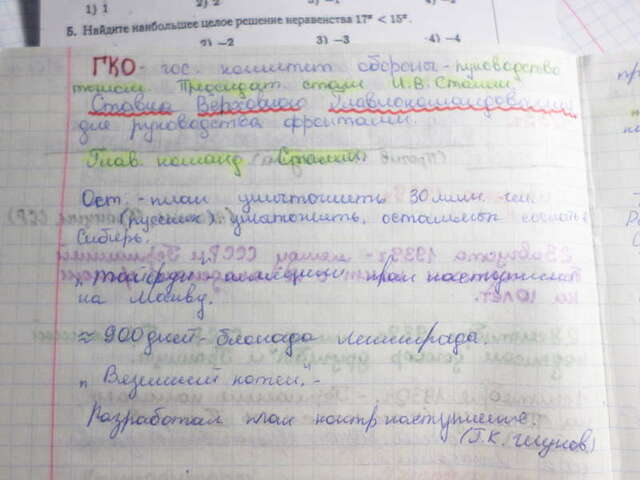 1) 1
5. Найдите наибольшее целое решение неравенства 17ˣ < 15ˣ.
2) –2 3) –3 4) –4
ГКО - гос. комитет обороны - руководство
тылом. Председат стал И.В. Сталин.
Ставка Верховного Главнокомандования
для руководства фронтами.
Глав. команд (Сталин)
Ост. - план уничтожить 30 млн. чел
(русских) уничтожить, остальных сослать в
Сибирь.
"Тайфун" - план наступления
на Москву.
≈ 900 дней - блокада Ленинграда.
"Вяземский котел" -
Разработал план контрнаступление.
(Г.К. Жуков)